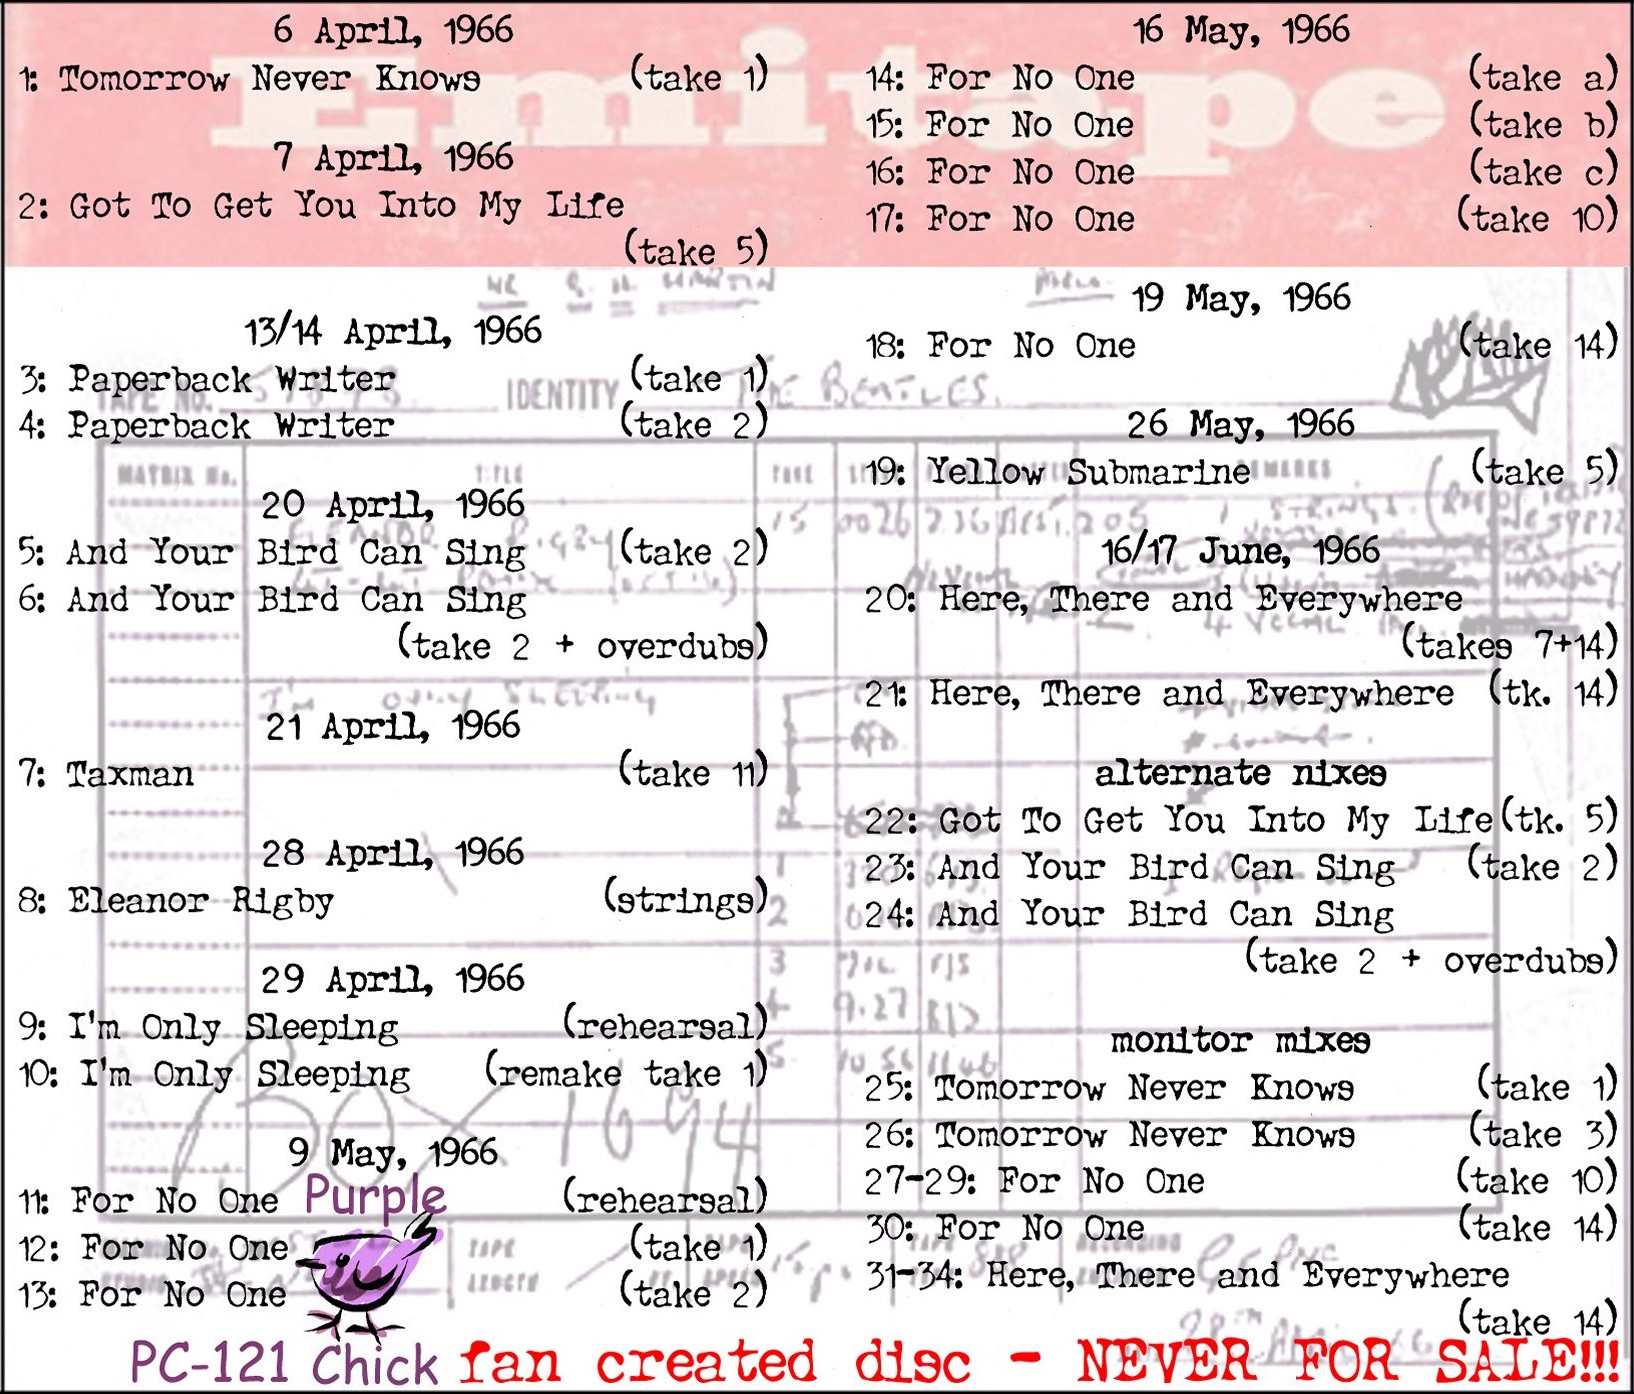 Emitape
6 April, 1966
1: Tomorrow Never Knows (take 1)
7 April, 1966
2: Got To Get You Into My Life
(take 5)
13/14 April, 1966
3: Paperback Writer (take 1)
4: Paperback Writer (take 2)
20 April, 1966
5: And Your Bird Can Sing (take 2)
6: And Your Bird Can Sing
(take 2 + overdubs)
21 April, 1966
7: Taxman (take 11)
28 April, 1966
8: Eleanor Rigby (strings)
29 April, 1966
9: I'm Only Sleeping (rehearsal)
10: I'm Only Sleeping (remake take 1)
9 May, 1966
11: For No One (rehearsal)
12: For No One (take 1)
13: For No One (take 2)
16 May, 1966
14: For No One (take a)
15: For No One (take b)
16: For No One (take c)
17: For No One (take 10)
19 May, 1966
18: For No One (take 14)
26 May, 1966
19: Yellow Submarine (take 5)
16/17 June, 1966
20: Here, There and Everywhere
(takes 7+14)
21: Here, There and Everywhere (tk. 14)
alternate nixes
22: Got To Get You Into My Life (tk. 5)
23: And Your Bird Can Sing (take 2)
24: And Your Bird Can Sing
(take 2 + overdubs)
monitor mixes
25: Tomorrow Never Knows (take 1)
26: Tomorrow Never Knows (take 3)
27-29: For No One (take 10)
30: For No One (take 14)
31-34: Here, There and Everywhere
(take 14)
Purple
PC-121 Chick fan created disc - NEVER FOR SALE!!!
MR G. H. MARTIN
TAPE NO. IDENTITY THE BEATLES.
MATRIX No. TITLE
ELEANOR RIGBY
I'm ONLY SLEEPING
TAPE LENGTH